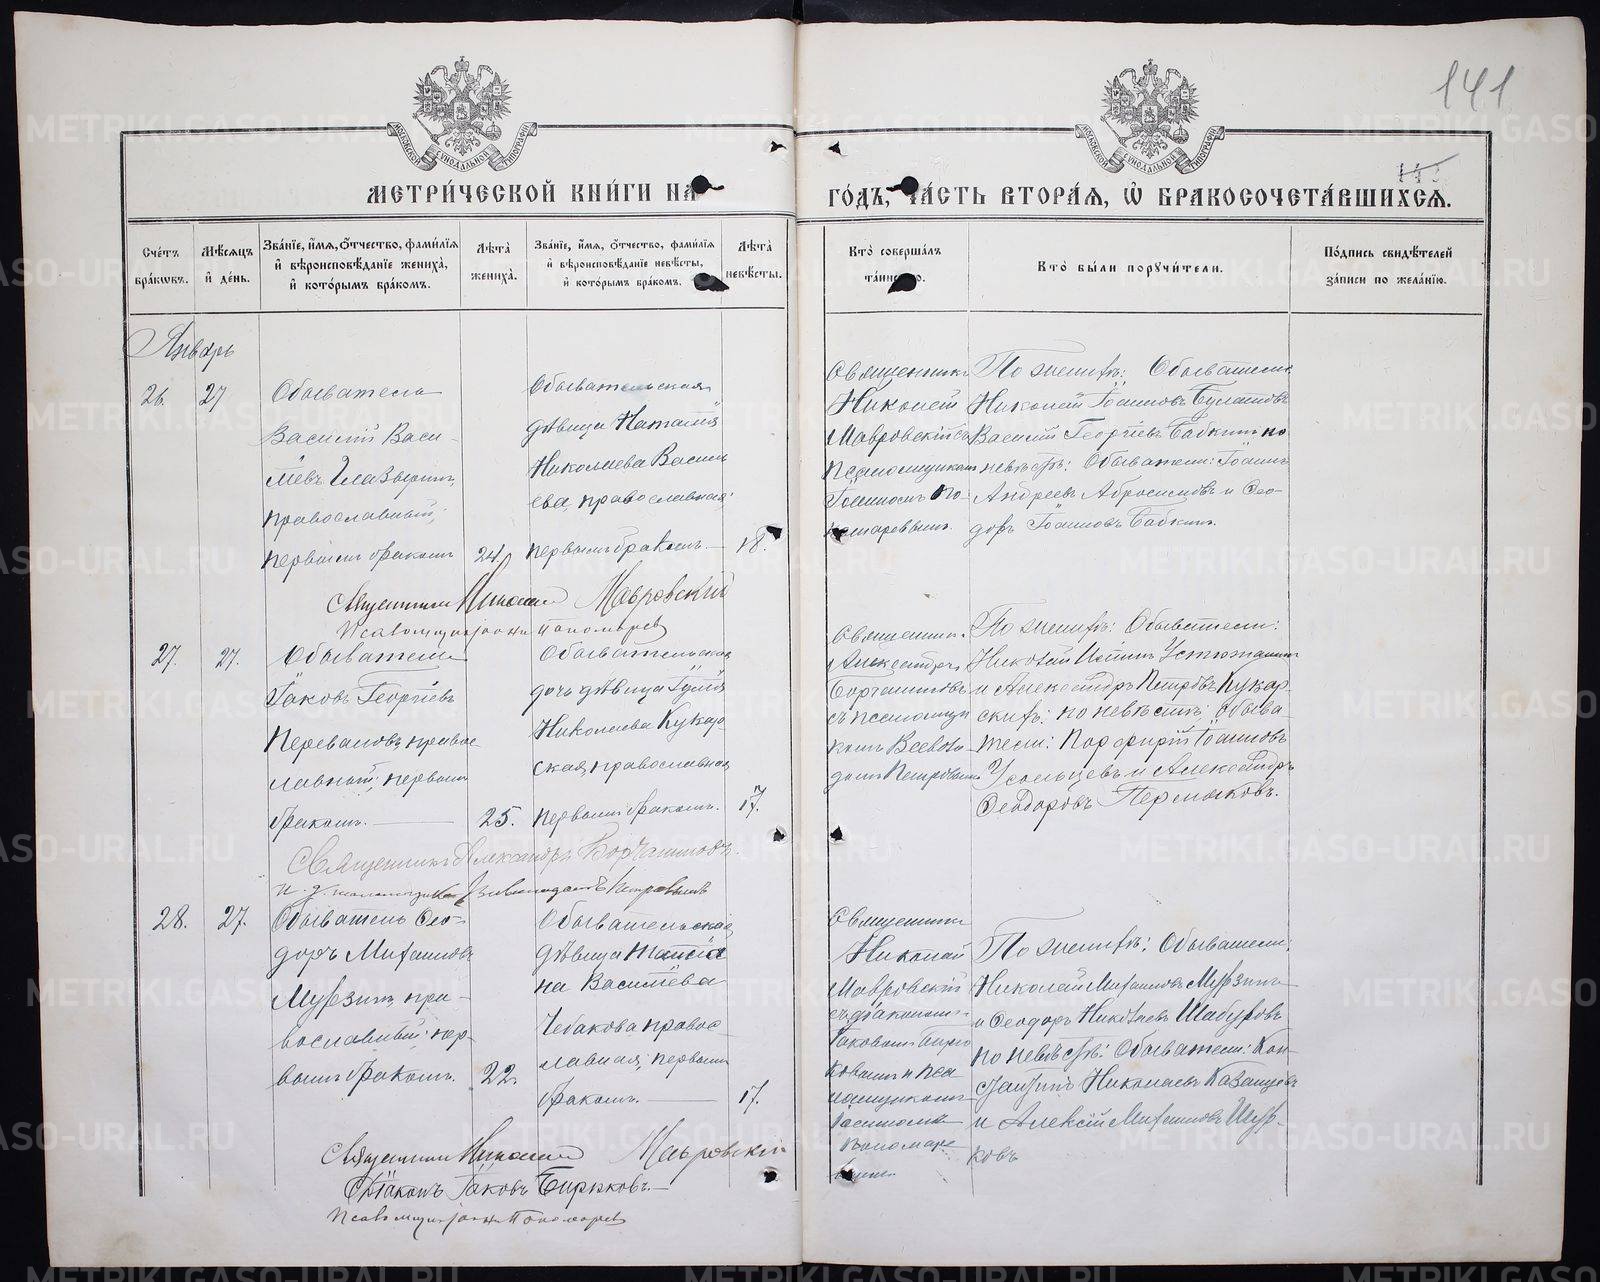 141
МОСКОВСКОЙ СѴНОДАЛЬНОЙ ТИПОГРАФІИ
МОСКОВСКОЙ СѴНОДАЛЬНОЙ ТИПОГРАФІИ
МЕТРИ́ЧЕСКОЙ КНИ́ГИ НА ГО́ДЪ, ЧА́СТЬ ВТОРА́Я, Ѡ БРАКОСОЧЕТА́ВШИХСЯ.
Сче́тъ бра́кѡвъ.
Мѣ́сяцъ и҆ де́нь.
Зва́нїе, и҆́мя, ѻ҆́тчество, фамѝлїя и҆ вѣроисповѣ́данїе женихà, и҆ кото́рымъ бра́комъ.
Лѣ́та женихà.
Зва́нїе, и҆́мя, ѻ҆́тчество, фамѝлїя и҆ вѣроисповѣ́данїе невѣ́сты, и҆ кото́рымъ бра́комъ.
Лѣ́та невѣ́сты.
Кто̀ соверша́лъ та́инство.
Кто̀ бы́ли порꙋчи́тели.
По́дпись свидѣ́телей за́писи по жела́нїю.
Январь
26.
27
Обыватель
Василій Васи-
льевъ
православный,
первымъ бракомъ
24.
Обывательская
дѣвица Наталія
Николаева Василь
ева, православная,
первымъ бракомъ —
18.
Священникъ
Николай
Мавровскій съ
псаломщикомъ
Іоанномъ По-
номаревымъ.
По женихѣ: Обыватели
Николай Іоанновъ Булатовъ
Василій Георгіевъ Бабкинъ по
невѣстѣ: Обыватели: Іоаннъ
Андреевъ Абросимовъ и Ѳео-
доръ Іоанновъ Бабкинъ.
Священникъ Николай Мавровскій
Псаломщикъ Іоаннъ Пономаревъ
27.
27.
Обыватель
Іаковъ Георгіевъ
Переваловъ, правос-
лавный, первымъ
бракомъ. —
25.
Обывательская
дочь дѣвица Іулія
Николаева Кукар-
ская, православная
первымъ бракомъ.
17.
Священникъ
Александръ
съ псаломщи
комъ Всеволо-
домъ Петровымъ
По женихѣ: Обыватели:
Николай Устюжанинъ
и Александръ Петровъ Кукар-
скихъ; по невѣстѣ: Обыва-
тели: Порфирій Іоанновъ
Усольцевъ и Александръ
Ѳеодоровъ Пермяковъ.
Священникъ Александръ
28.
27.
Обыватель Ѳео-
доръ Михаиловъ
Мурзинъ, пра-
вославный, пер-
вымъ бракомъ.
22.
Обывательская
дѣвица Татіа
на Васильева
Чебакова правос-
лавная, первымъ
бракомъ. —
17.
Священникъ
Николай
Мавровскій
съ діакономъ
Іаковомъ Бирю
ковымъ и пса
ломщикомъ
Пономаре
вымъ
По женихѣ: Обыватели:
Николай Михаиловъ Мурзинъ
и Ѳеодоръ Николаевъ Шабуровъ
по невѣстѣ: Обыватели: Кон-
стантинъ Николаевъ Казанцевъ
и Алексій Михаиловъ Шур-
ковъ
Священникъ Николай Мавровскій
Діаконъ Іаковъ Бирюковъ.—
Псаломщикъ Іоаннъ Пономаревъ
METRIKI.GASO-URAL.RU